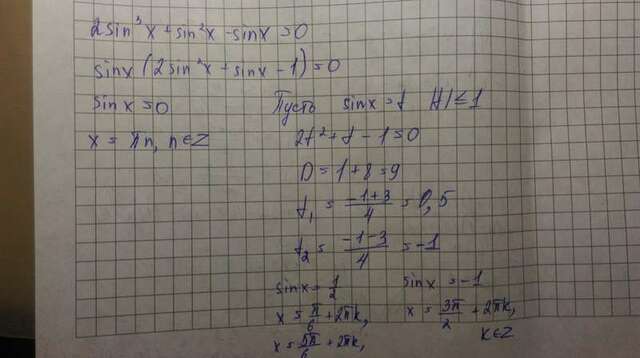 2sin³x + sin²x - sinx = 0
sinx (2sin²x + sinx - 1) = 0
sinx = 0
x = πn, n∈Z
Пусть sinx = t |t| ≤ 1
2t² + t - 1 = 0
D = 1 + 8 = 9
t₁ = (-1+3)/4 = 0,5
t₂ = (-1-3)/4 = -1
sinx = 1/2
x = π/6 + 2πk,
x = 5π/6 + 2πk,
sinx = -1
x = 3π/2 + 2πk,
k∈Z